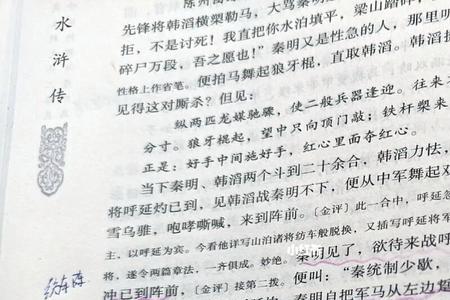 水浒传
先锋将韩滔横槊勒马，大骂秦明
拒，不是讨死！我直把你水泊填平，梁山踏碎
碎尸万段，吾之愿也！”秦明又是性急的人，那里
性格上作省笔。便拍马舞起狼牙棍，直取韩滔。韩滔
见得这对厮杀？但见：
纵两匹龙媒驰骤，使二般兵器逢迎。往来
分寸。狼牙棍起，望中只向顶门敲；铁杆槊来
正是：好手中间施好手，红心里面夺红心。
当下秦明、韩滔两个斗到二十余合，韩滔力怯，
将呼延灼已到，见韩滔战秦明不下，便从中军舞起双
雪乌骓，咆哮嘶喊，来到阵前。〔金评〕此一合中，呼延
主、以呼延为宾。今看他详写山泊诸将纺车般脱换，又插写呼延将军
将，遂令两篇章法，一齐俱成。妙绝。秦明见了，欲待来战呼
冲已到阵前，〔金评〕接第二拨。便叫：“秦统制少歇，
秦明自把军马从左边
小红书